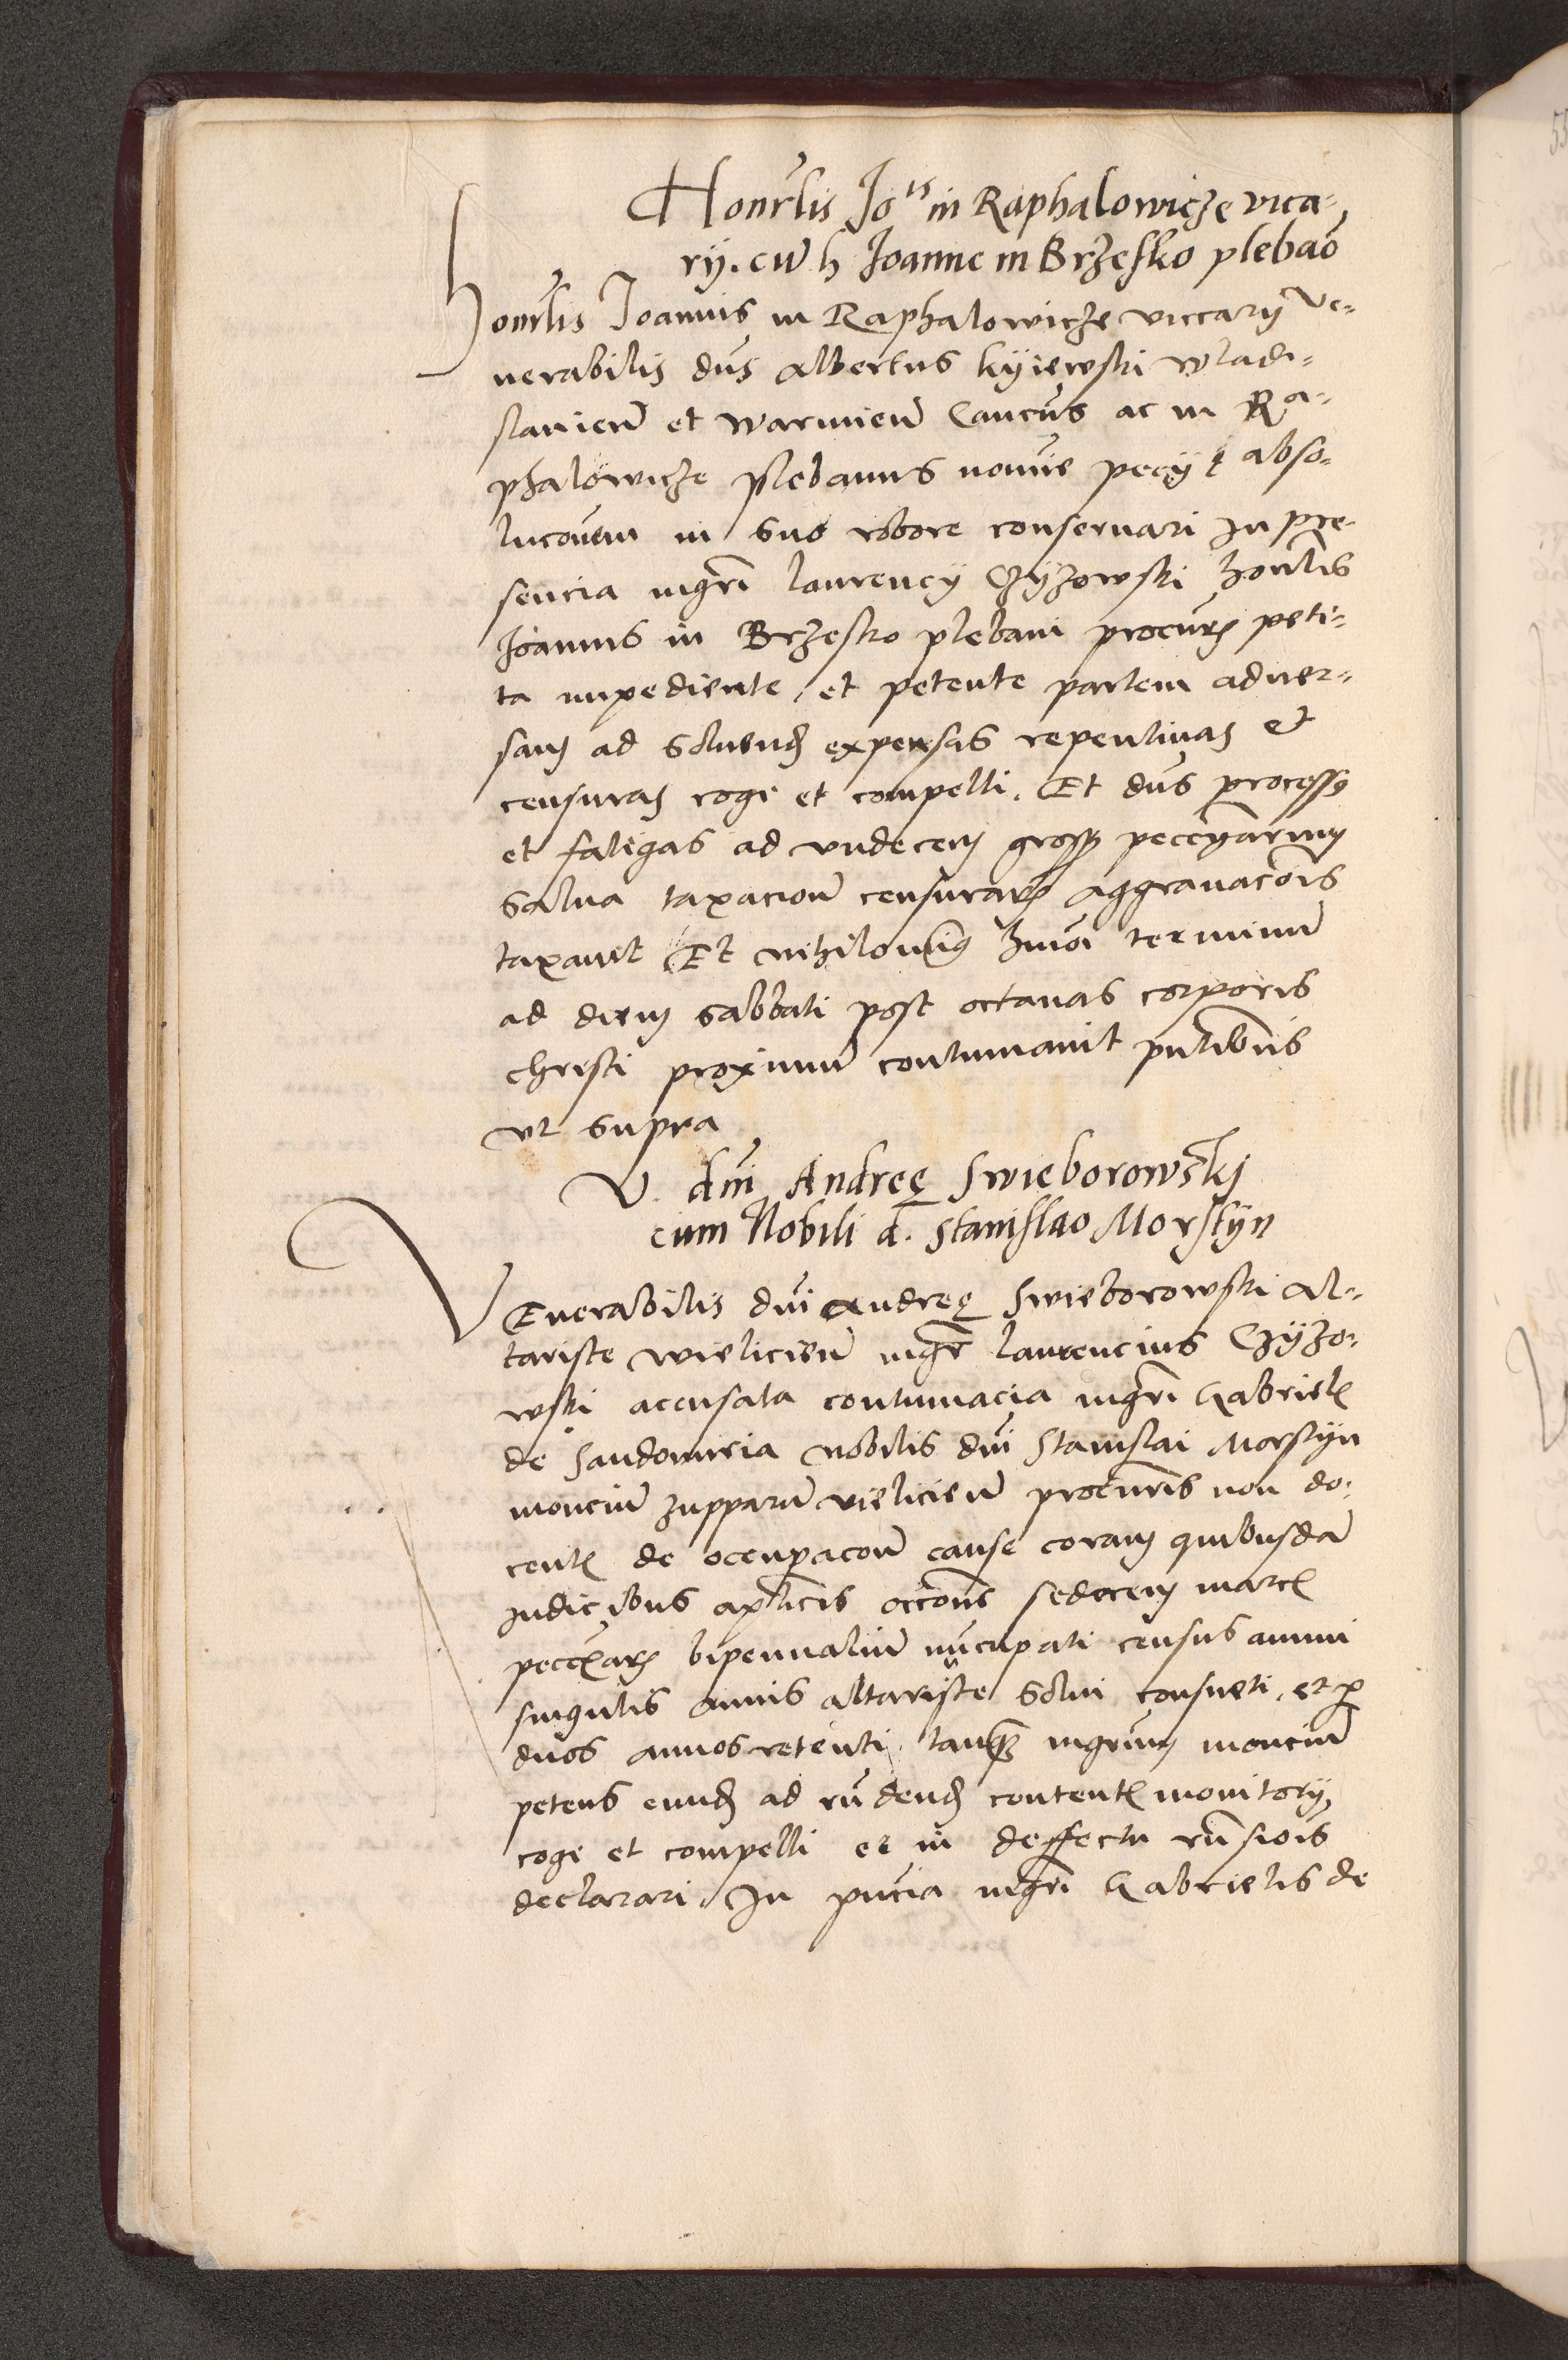 Honrlis Jois in Raphalowicze vica-
rij. cum h Joanne in Brzesko plebano
Honrlis Joannis in Raphalowicze viccarij Ve-
nerabilis dns Albertus kyiewski wladi-
slaviens et warmiens Cancus ac in Ra-
phalowicze plebanus novus pecijt abso-
lucionem in suo robore conservari In pre-
sencia mgri laurencij Czyzowski honrlis
Joannis in Brzesko plebani procuris peti-
ta impediente, et petente partem adver-
sam ad solvend expensas repentinas et
censuras cogi et compelli. Et dns processus
et fatigas ad undecem gross peccuniarum
salva taxacione censurarum aggravacionis
taxavit Et nihilominus huiusmodi terminum
ad diem sabbati post octavas corporis
christi proximum continuavit pntibus
ut supra
V. dni Andreę Swieborowskj
cum Nobili d. Stanislao Morstyn
VEnerabilis dni Andreę Swieborowski Al-
tariste wieliciens mgr laurencius Czyzo-
wski accusata contumacia mgri Gabriel
de Sandomiria nobilis dni Stanislai Morstyn
zupparum vieliciens procuris non do-
cent de occupacione cause coram quibusdam
Judicibus aplicis occone sedecem marc
peccuniarum nuncupati census annui
singulis annis altariste solvi consueti, et per
duos annos retenti, tanquam
petens eund ad rndend content monitorij
cogi et compelli et in deffectu rnsionis
declarari. In pncia mgri Gabrielis de